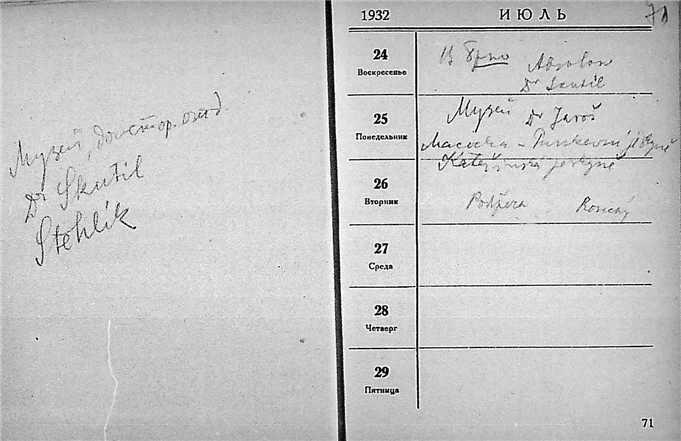 Музей, доистор. отд.
Dr Skutil
Stehlík
1932 ИЮЛЬ 71
24 Воскресенье
В Брно Absolon
Dr Skutil
25 Понедельник
Музей Dr Jaroš
Macocha – Punkevní jeskyně
Kateřinská jeskyně
26 Вторник
Podpěra
27 Среда
28 Четверг
29 Пятница
71